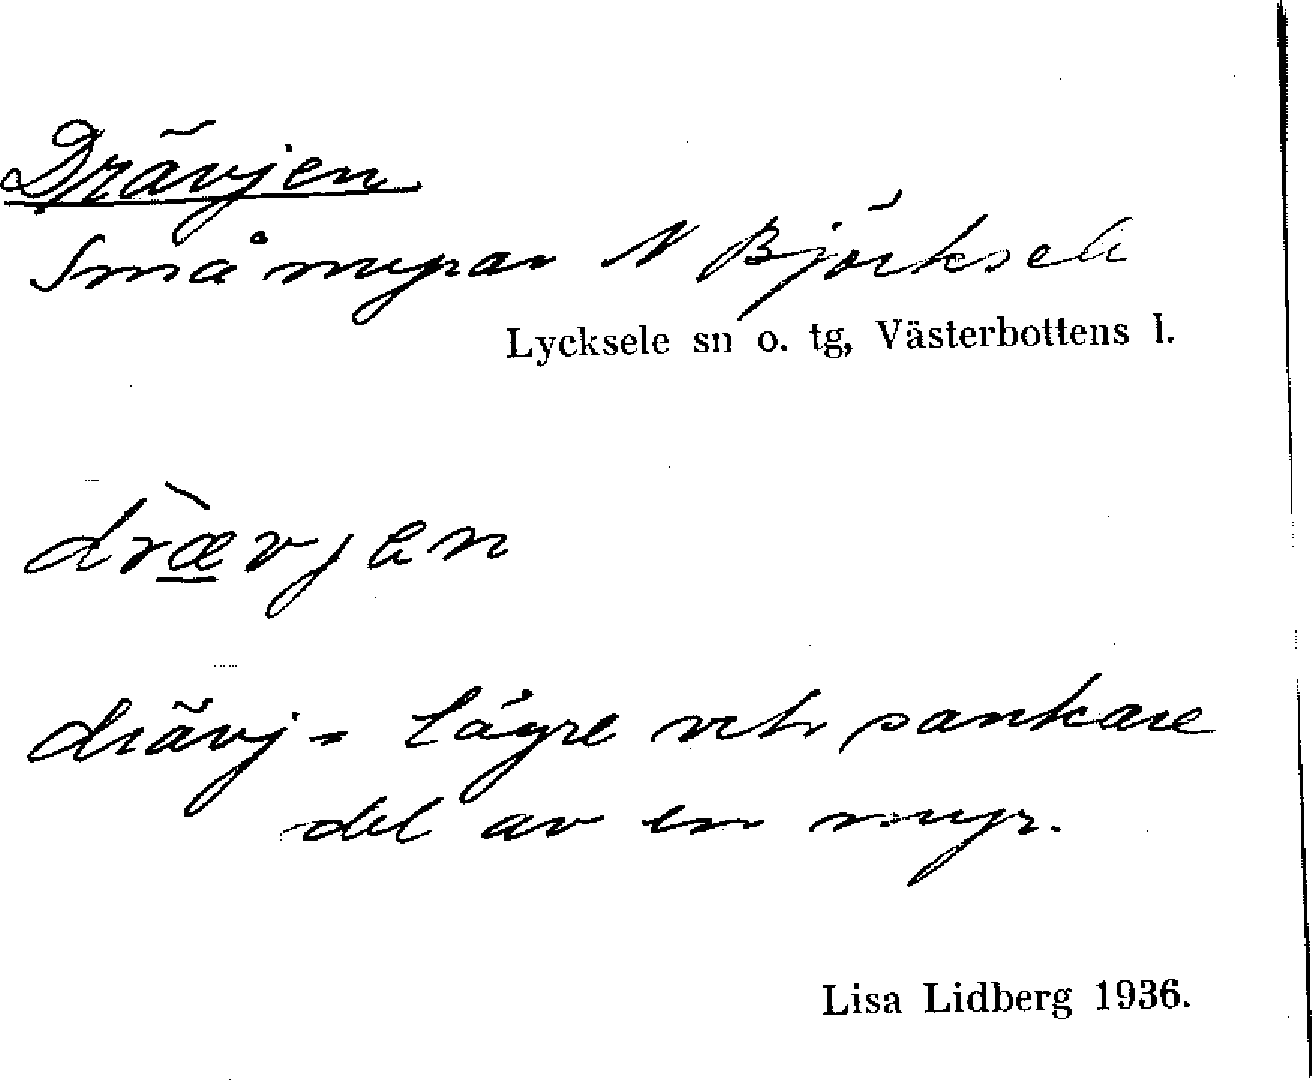 Drävjen
Små myrar N Björksele
Lycksele sn o. tg, Västerbottens l.
dràvjen
drävj = Lägre och sankare
del av en myr.
Lisa Lidberg 1936.